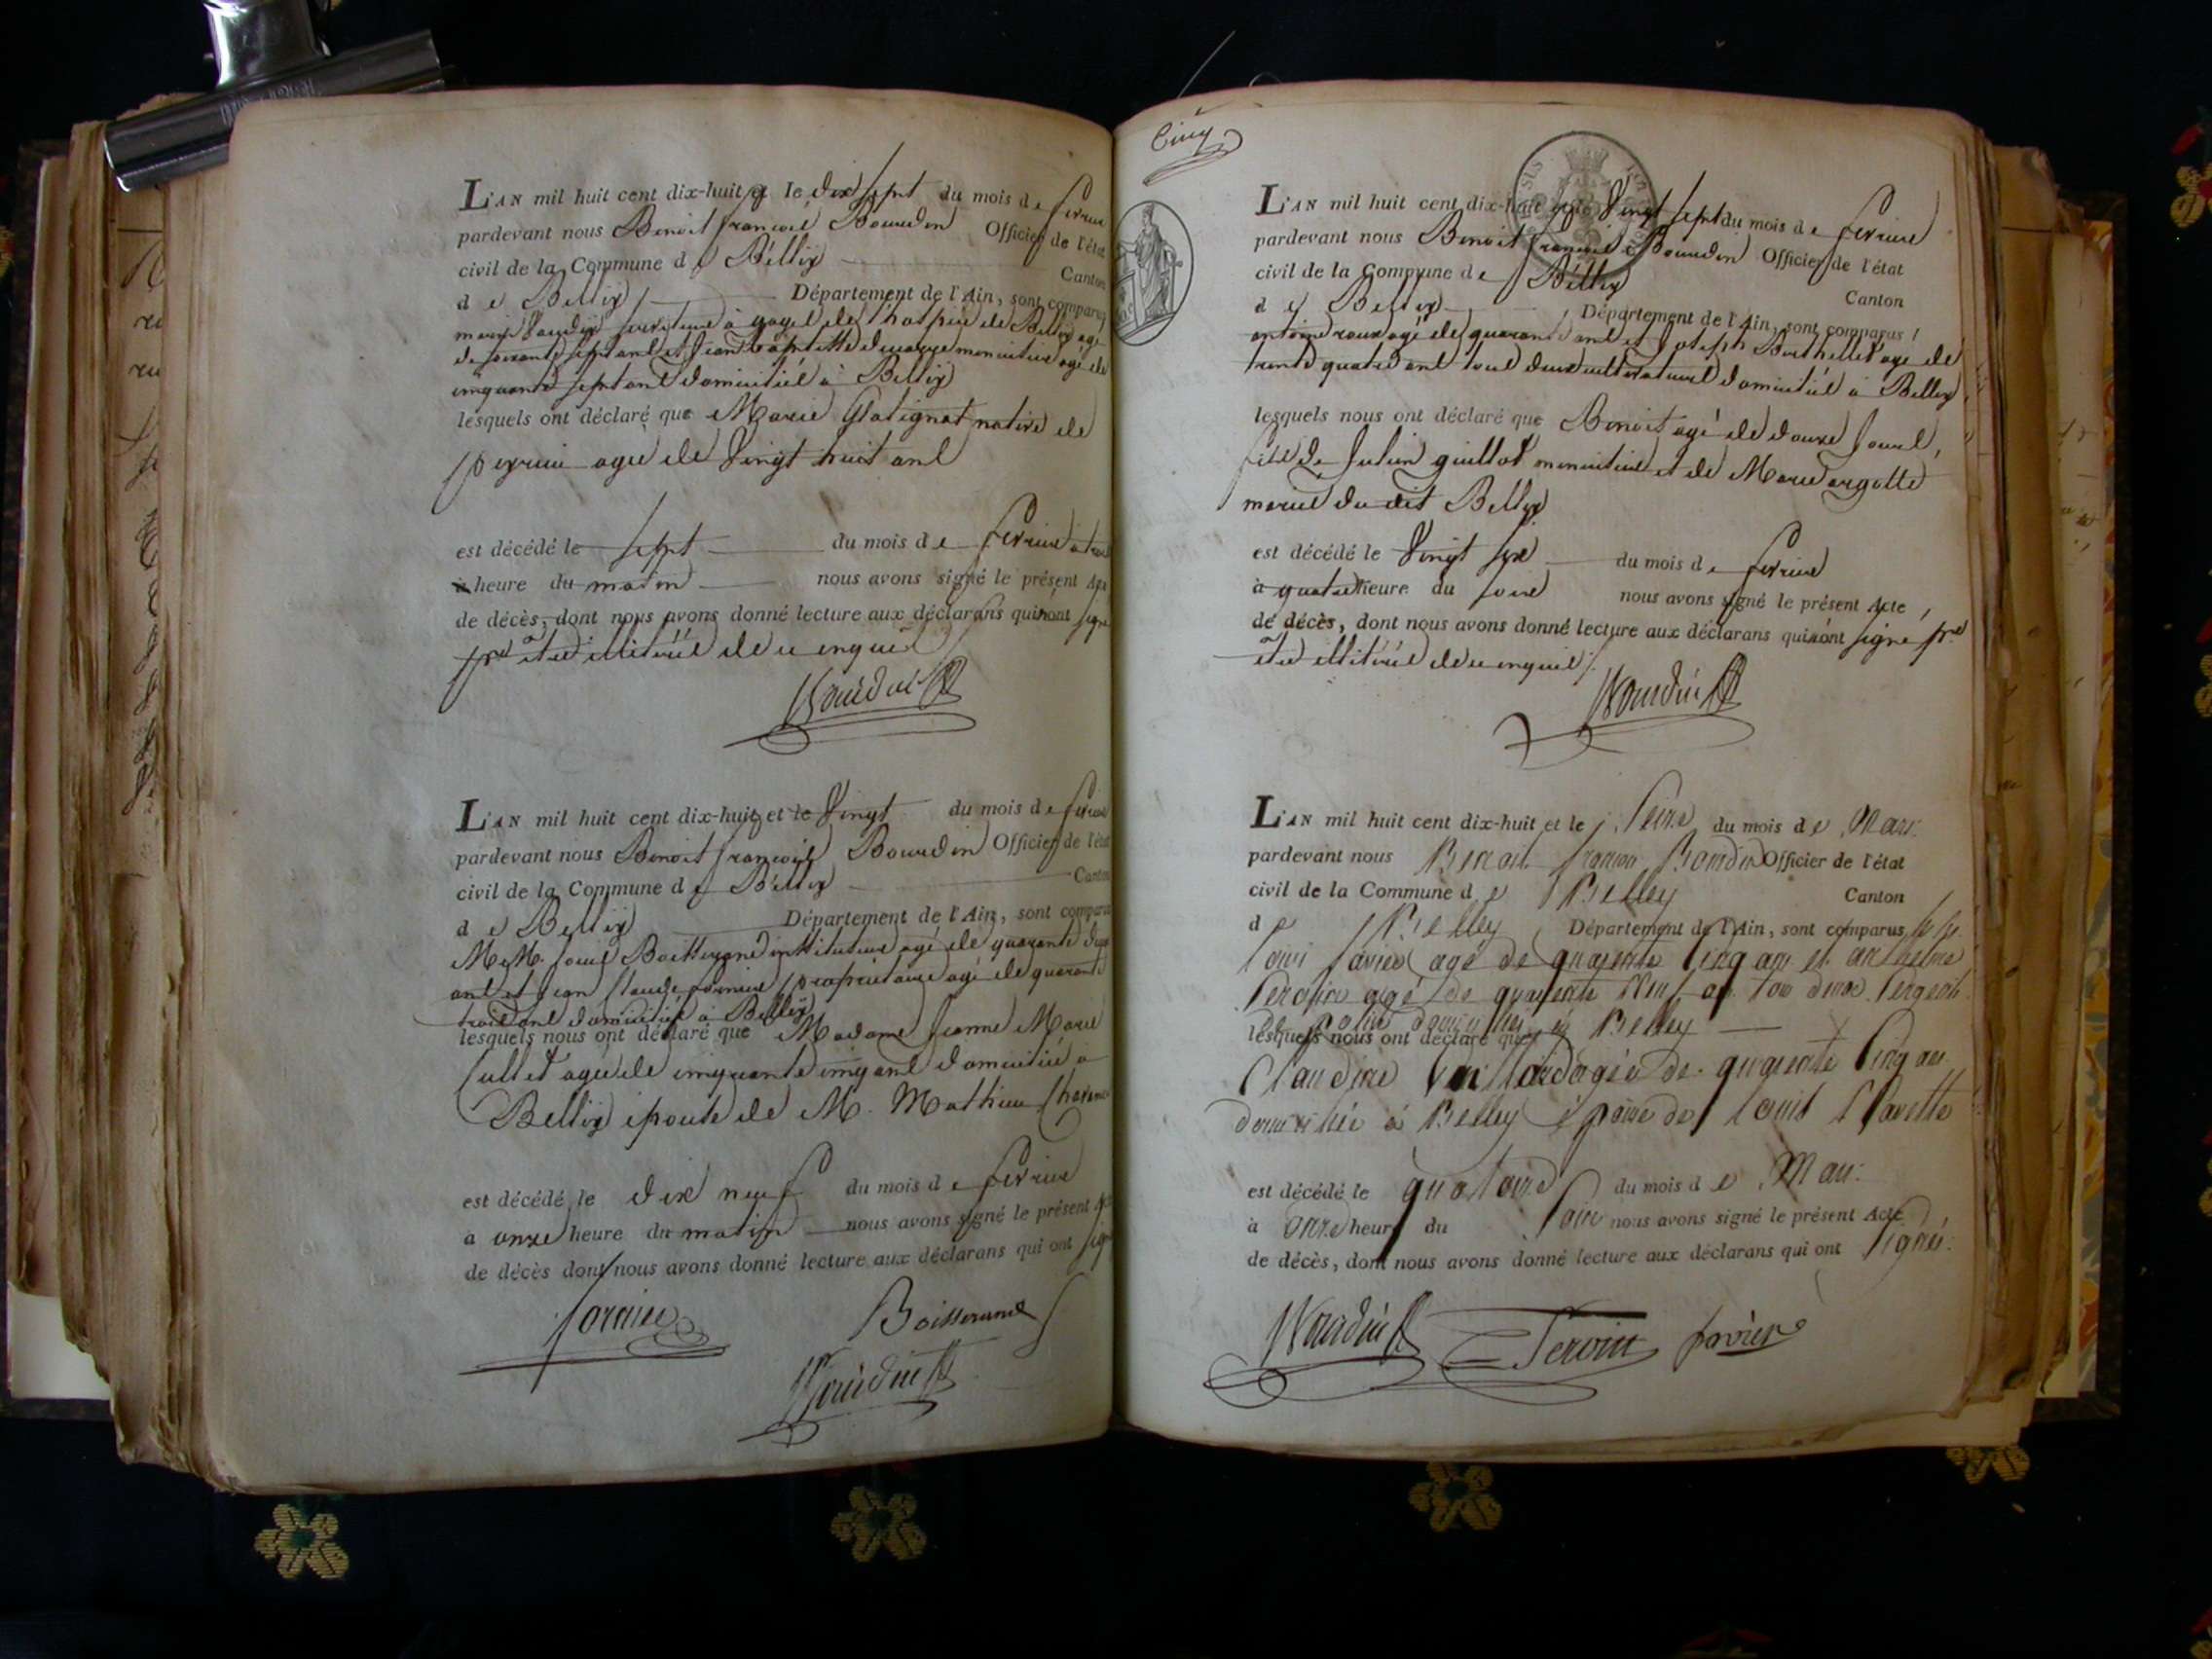 L'AN mil huit cent dix-huit et le dix sept du mois de fevrier
pardevant nous Benoit françois Bourdin Officier de l'état
civil de la Commune de Belley Canton
de Belley Département de l'Ain, sont comparus
à gages de l'hospice de Belley agé
de soixante sept ans et Jean Baptiste agé de
cinquante sept ans domiciliés à Belley
lesquels ont déclaré que Marie Glatignat native de
agée de vingt huit ans
est décédé le sept du mois de fevrier à trois
heure du matin nous avons signé le présent Acte
de décès, dont nous avons donné lecture aux déclarans qui n'ont signé
pr être illitérés de ce enquis
Bourdin
L'AN mil huit cent dix-huit et le vingt du mois de fevrier
pardevant nous Benoit françois Bourdin Officier de l'état
civil de la Commune de Belley Canton
de Belley Département de l'Ain, sont comparus
M. M. Louis Boisserand instituteur agé de quarante deux
ans et Jean Claude propriétaire agé de quarante
trois ans domiciliés à Belley
lesquels nous ont déclaré que Madame Jeanne Marie
Cullet agée de cinquante cinq ans domiciliée à
Belley épouse de M. Mathieu
est décédé le dix neuf du mois de fevrier
à onze heure du matin nous avons signé le présent Acte
de décès dont nous avons donné lecture aux déclarans qui ont signé
Boisserand
Bourdin
Cinq
L'AN mil huit cent dix-huit et le vingt sept du mois de fevrier
pardevant nous Benoit françois Bourdin Officier de l'état
civil de la Commune de Belley
de Belley Canton
Département de l'Ain, sont comparus
antoine roux agé de quarante ans et Joseph Berthellet agé de
trente quatre ans tous deux cultivateurs domiciliés à Belley
lesquels nous ont déclaré que Benoit agé de douze jours,
fils de Julien guillot menuisier et de Marie argotte
mariés du dit Belley
est décédé le vingt six du mois de fevrier
à quatre heure du soir nous avons signé le présent Acte
de décès, dont nous avons donné lecture aux déclarans qui n'ont signé pr
être illitérés de ce enquis
Bourdin
L'AN mil huit cent dix-huit et le Seize du mois de Mars
pardevant nous Benoit françois Bourdin Officier de l'état
civil de la Commune de Belley Canton
de Belley Département de l'Ain, sont comparus
Louis favier agé de quarante cinq ans et anthelme
Peroin agé de quarante neuf ans tous deux sergents
de police domiciliés à Belley
lesquels nous ont déclaré que
Claudine agée de quarante cinq ans
domiciliée à Belley épouse de Louis Clavette
est décédé le quatorze du mois de Mars
à onze heure du soir nous avons signé le présent Acte
de décès, dont nous avons donné lecture aux déclarans qui ont signés
Bourdin Peroin favier